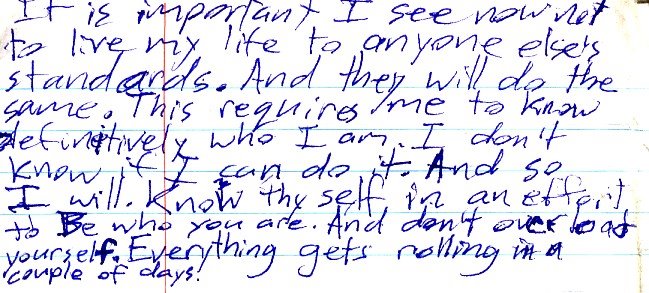 It is important I see now not
to live my life to anyone else's
standards. And they will do the
same. This requires me to know
definitively who I am. I don't
know if I can do it. And so
I will. Know thy self in an effort
to Be who you are. And don't overload
yourself. Everything gets rolling in a
couple of days.